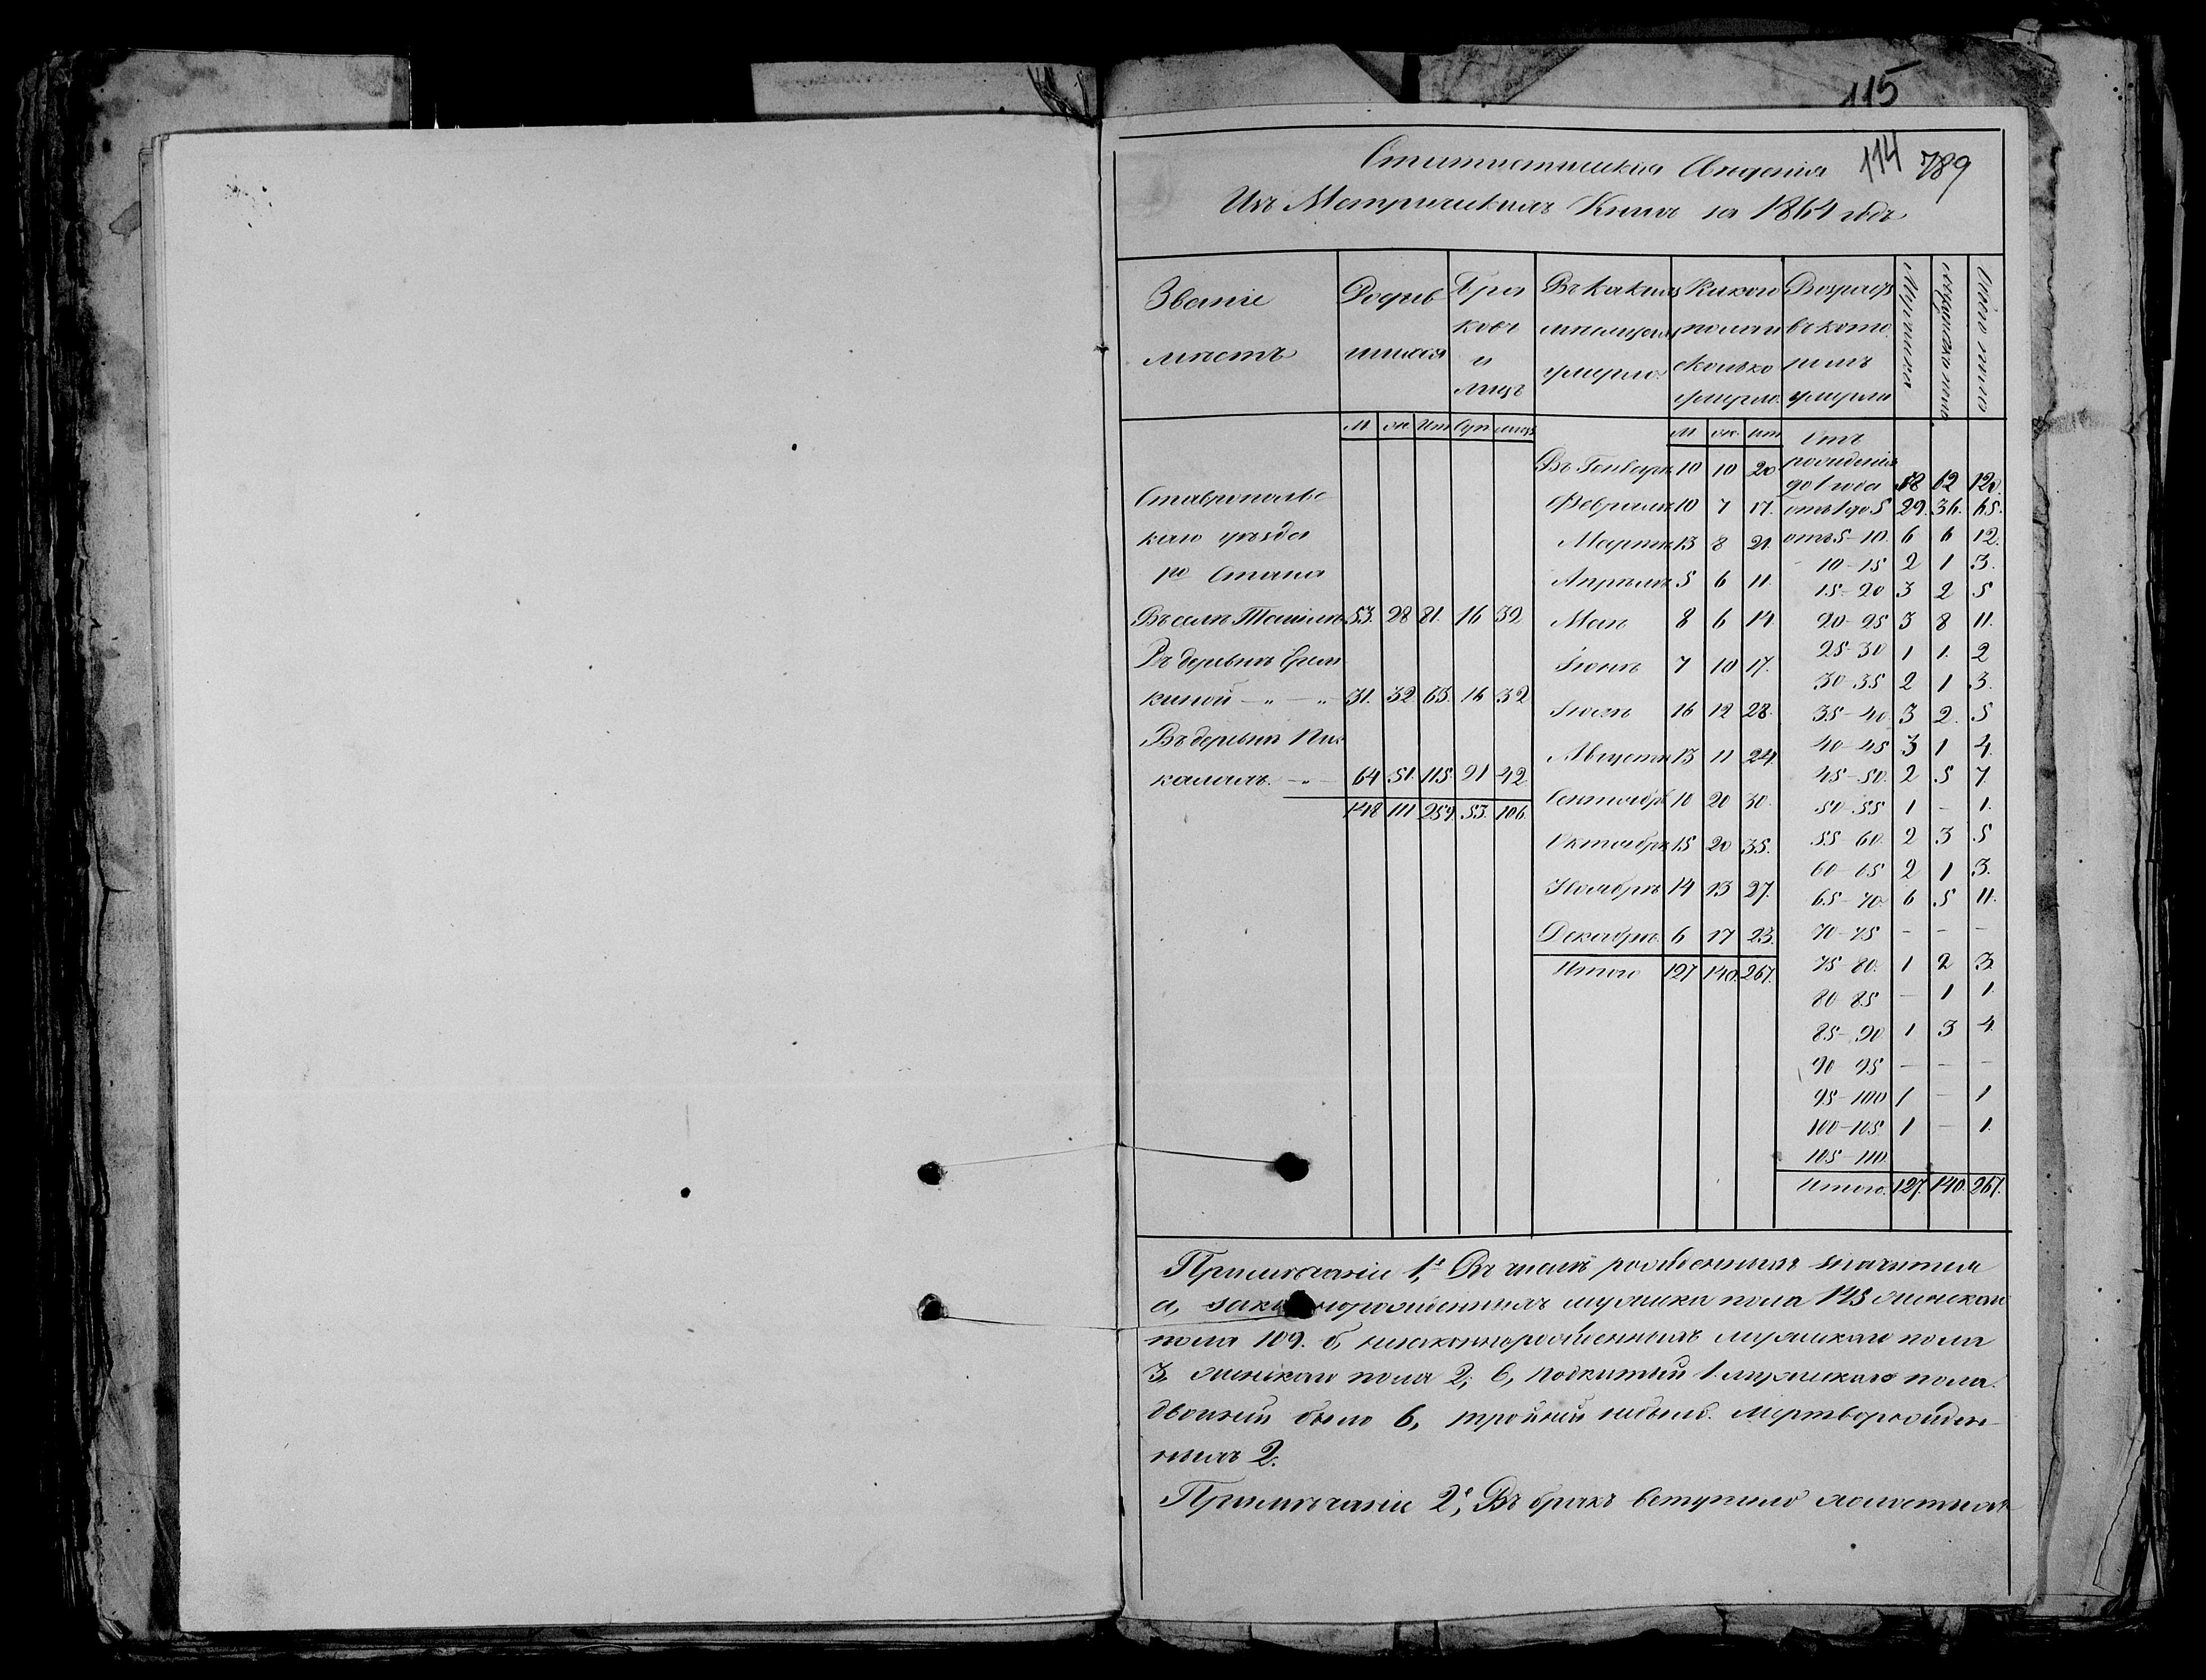 115
114 789
Статистическія Сведенія
Изъ Метрическихъ Книгъ за 1864 годъ
Званіе мѣстъ | Родив шихся | Бра ковъ и лицъ | Въ какихъ мѣсяцахъ умерло. | Какого пола и сколько умерло. | Возрастъ въ кото рымъ умерли | Мужска | Женскаго пола | Обоего пола
М | ж. | Ит | бр | лицъ | М | ж. | ит
Отъ рожденія до 1 года | 58 | 62 | 120.
Въ Генварѣ | 10 | 10 | 20
Февралѣ | 10 | 7 | 17. | отъ 1 до 5 | 29. | 36. | 65.
Мартѣ | 13 | 8 | 21 | отъ 5-10. | 6 | 6 | 12.
10-15 | 2 | 1 | 3.
Апрѣлѣ | 5 | 6 | 11. | 15-20 | 3 | 2 | 5
Ставропольс
каго уѣзда
1го Стана
Въ селѣ | 53. | 28 | 81. | 16 | 32 | Маѣ | 8 | 6 | 14 | 20-25 | 3 | 8 | 11.
25-30 | 1 | 1. | 2
Въ деревнѣ Ерем
киной - „ - „ | 31. | 32 | 63. | 16 | 32 | Іюнѣ | 7 | 10 | 17. | 30-35 | 2 | 1 | 3.
Іюлѣ | 16 | 12 | 28. | 35-40. | 3 | 2. | 5
Въ деревнѣ Пис
калахъ. - „ - | 64 | 51. | 115. | 21 | 42. | Августѣ | 13 | 11 | 24. | 40-45 | 3 | 1 | 4.
45-50. | 2 | 5 | 7.
148 | 111 | 259. | 53. | 106. | Сентябрѣ | 10 | 20 | 30. | 50-55 | 1 | - | 1.
Октябрѣ | 15 | 20 | 35. | 55-60. | 2 | 3 | 5
60-65 | 2 | 1 | 3.
Ноябрѣ | 14 | 13 | 27. | 65-70. | 6 | 5 | 11.
Декабрѣ. | 6 | 17 | 23. | 70-75 | - | - | -
Итого | 127 | 140. | 267. | 75-80. | 1 | 2 | 3.
80-85 | - | 1 | 1.
85-90 | 1 | 3 | 4.
90-95 | - | - | -
95-100 | 1 | - | 1
100-105. | 1 | - | 1.
105-110.
Итого. | 127. | 140. | 267.
Примѣчаніе 1е, Въ числѣ рожденныхъ значится
а, законнорожденныхъ мужска пола 145 женскаго
пола 109. б, незаконнорожденныхъ мужскаго пола
3, женскаго пола 2; в, подкитый 1. мужскаго пола.
двойней было 6, тройней небыло. Мертворожден-
ныхъ 2.
Примѣчаніе 2е, Въ бракъ вступило холостыхъ